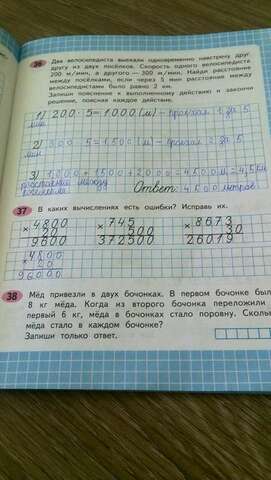 36 Два велосипедиста выехали одновременно навстречу друг
другу из двух посёлков. Скорость одного велосипедиста
200 м/мин, а другого — 300 м/мин. Найди расстояние
между посёлками, если через 5 мин расстояние между
велосипедистами было равно 2 км.
Запиши пояснение к выполненному действию и закончи
решение, поясняя каждое действие.
1) 200 · 5 = 1000 (м) – проехал 1 за 5
мин
2) 300 · 5 = 1500 (м) – проехал 2 за 5
мин
3) 1000 + 1500 + 2000 = 4500 м = 4,5 км
расстояние между
посёлками Ответ: 4500 метров.
37 В каких вычислениях есть ошибки? Исправь их.
× 4800 × 745 × 8673
20 500 30
9600 372500 26019
× 4800
20
96000
38 Мёд привезли в двух бочонках. В первом бочонке был
8 кг мёда. Когда из второго бочонка переложили
первый 6 кг, мёда в бочонках стало поровну. Сколь
мёда стало в каждом бочонке?
Запиши только ответ.